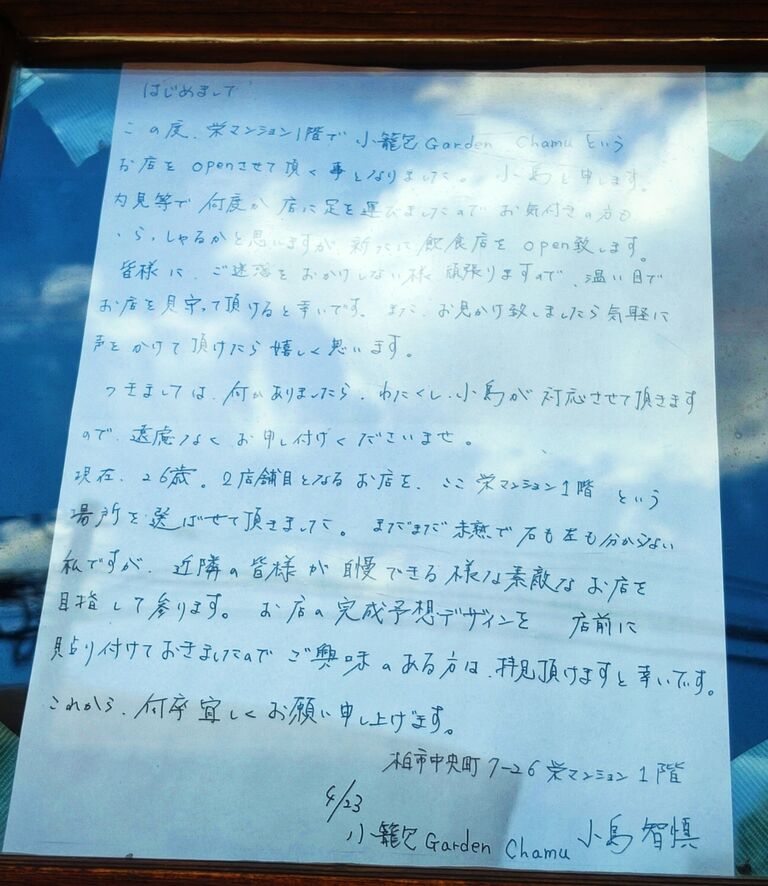 はじめまして
この度、栄マンション1階で 小籠包 Garden Chamu という
お店を openさせて頂く事となりました。 小島と申します。
内見等で 何度か 店に足を運びましたので お気付きの方も
いらっしゃるかと思いますが、新たに 飲食店を open致します。
皆様に、ご迷惑を おかけしない様 頑張りますので、温い目で
お店を見守って頂けると幸いです。また、お見かけ致しましたら気軽に
声をかけて頂けたら嬉しく思います。
つきましては、何かありましたら、わたくし、小島が対応させて頂きます
ので、遠慮なくお申し付けくださいませ。
現在、26歳。2店舗目となるお店を、ここ 栄マンション1階 という
場所を選ばせて頂きました。まだまだ未熟で右も左も分からない
私ですが、近隣の皆様が自慢できる様な素敵なお店を
目指して参ります。お店の完成予想デザインを 店前に
貼り付けておきましたので ご興味のある方は、拝見頂けますと幸いです。
これから、何卒宜しくお願い申し上げます。
柏市中央町 7-26 栄マンション1階
4/23
小籠包 Garden Chamu 小島智慎